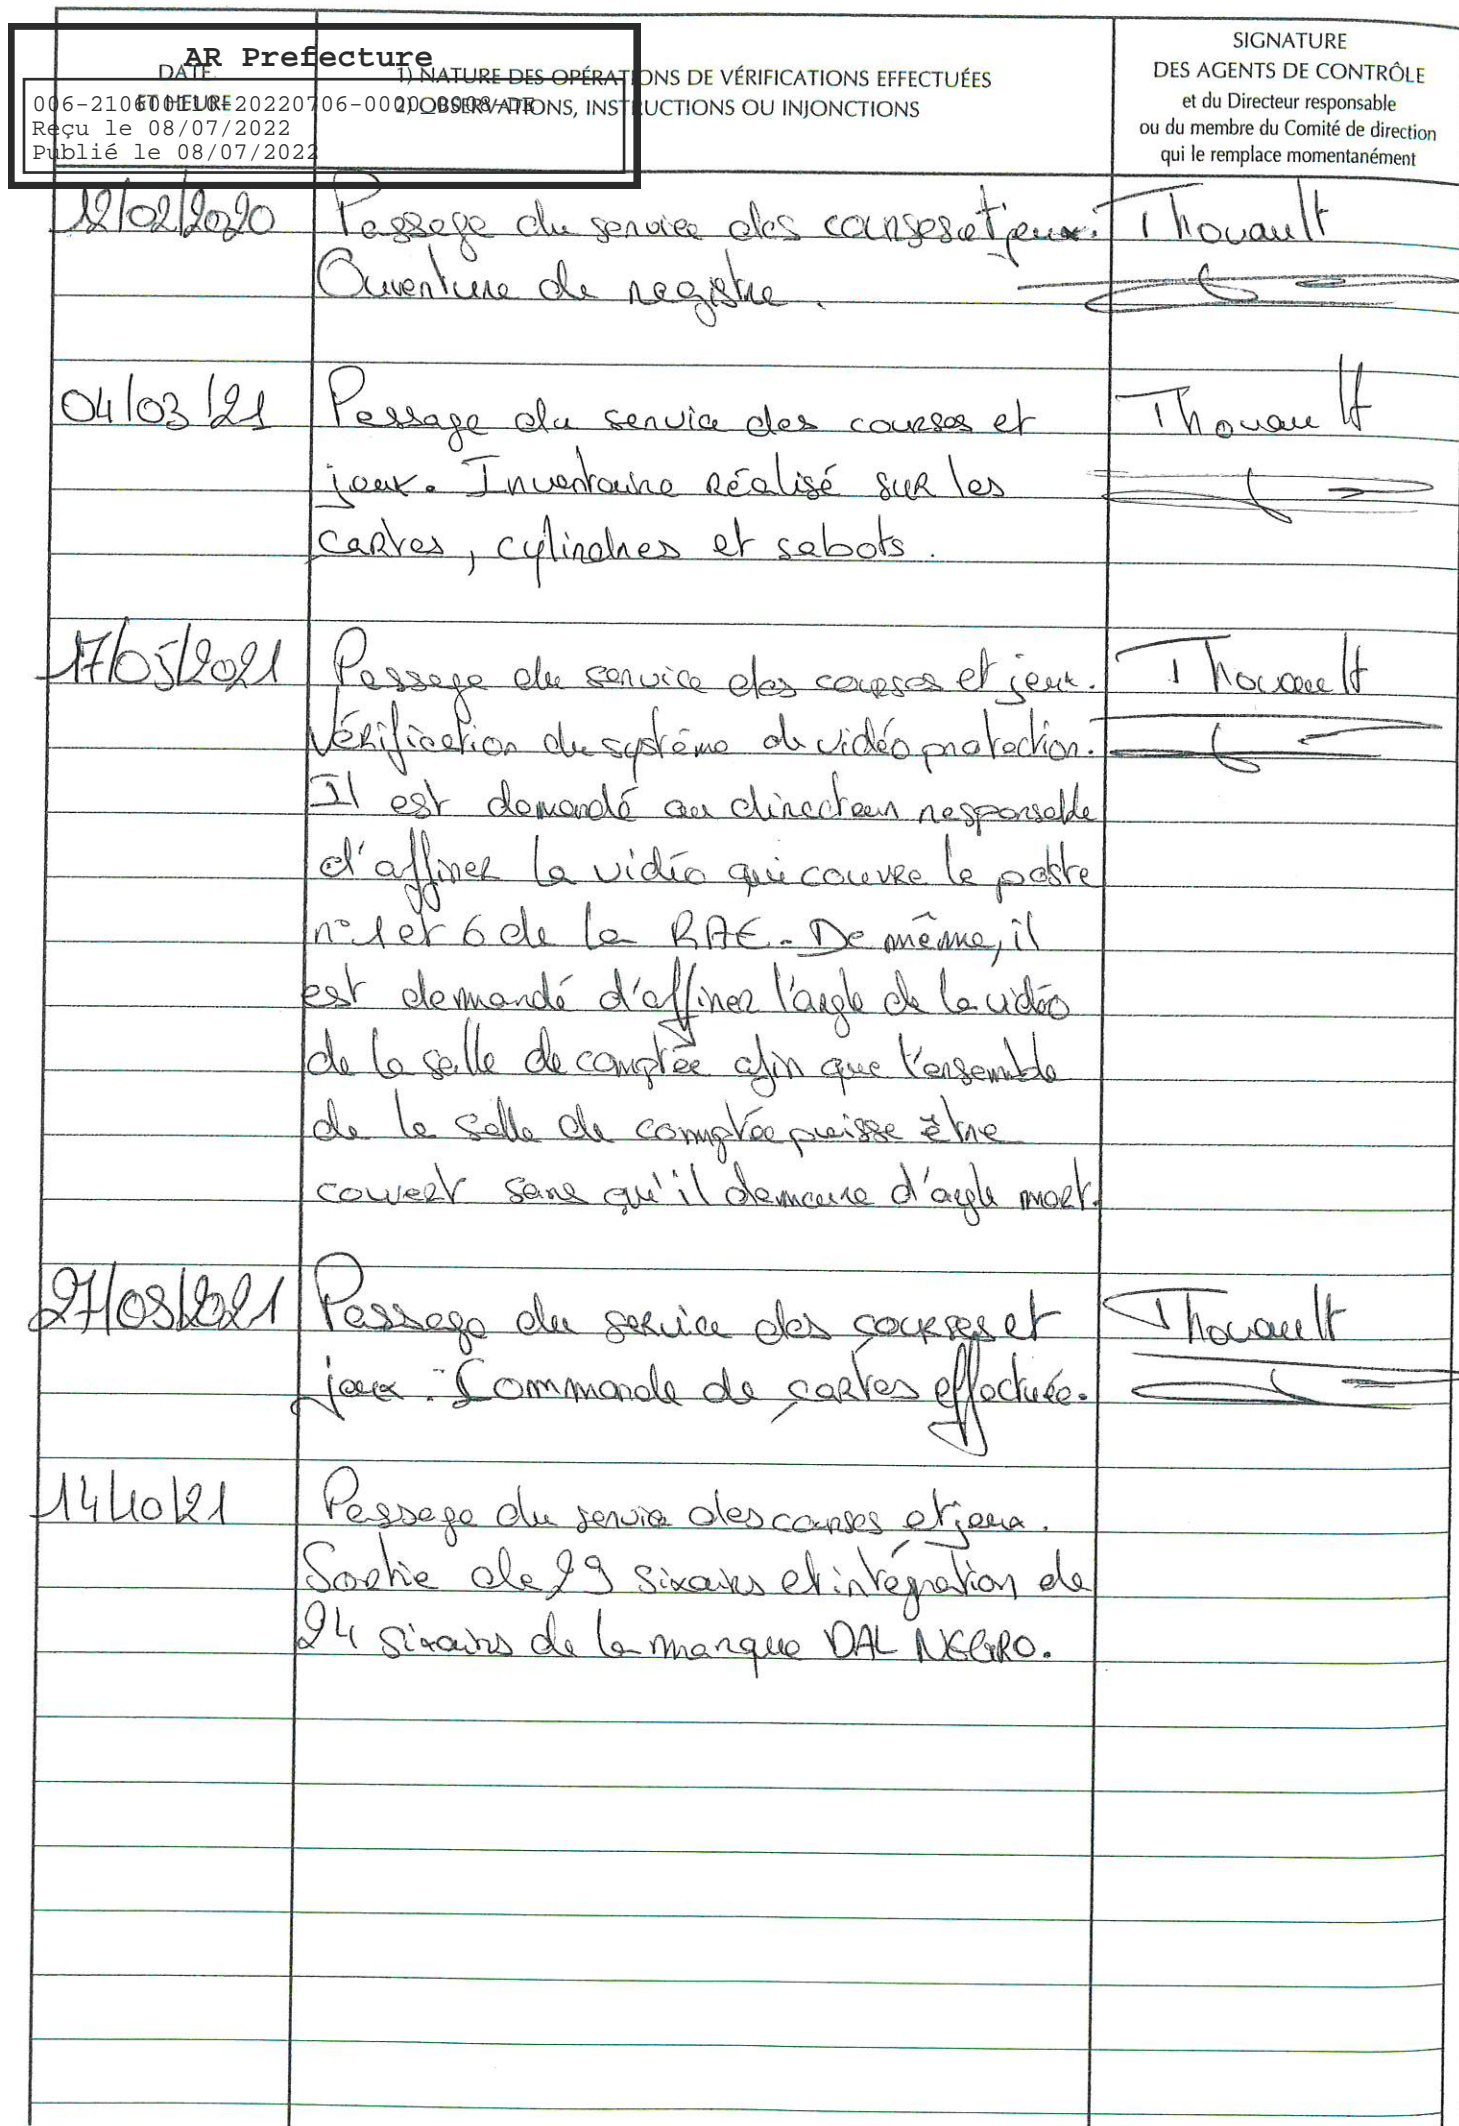 AR Prefecture
006-210600110-20220706-0020_0008-DE
Reçu le 08/07/2022
Publié le 08/07/2022
DATE
ET HEURE
1) NATURE DES OPÉRATIONS DE VÉRIFICATIONS EFFECTUÉES
2) OBSERVATIONS, INSTRUCTIONS OU INJONCTIONS
SIGNATURE
DES AGENTS DE CONTRÔLE
et du Directeur responsable
ou du membre du Comité de direction
qui le remplace momentanément
12/02/2020 Passage du service des courses et jeux. Thouault
Ouverture de registre.
04/03/21 Passage du service des courses et Thouault
jeux. Inventaire réalisé sur les
cartes, cylindres et sabots.
17/05/2021 Passage du service des courses et jeux. Thouault
Vérification du système de vidéo protection.
Il est demandé au directeur responsable
d'affiner la vidéo qui couvre le poste
n°1 et 6 de la RAE. De même, il
est demandé d'affiner l'angle de la vidéo
de la salle de comptée afin que l'ensemble
de la salle de comptée puisse être
couvert sans qu'il demeure d'angle mort.
27/08/2021 Passage du service des courses et Thouault
jeux. Commande de cartes effectuée.
14/10/21 Passage du service des courses et jeux.
Sortie de 29 sixains et intégration de
24 sixains de la marque DAL NEGRO.